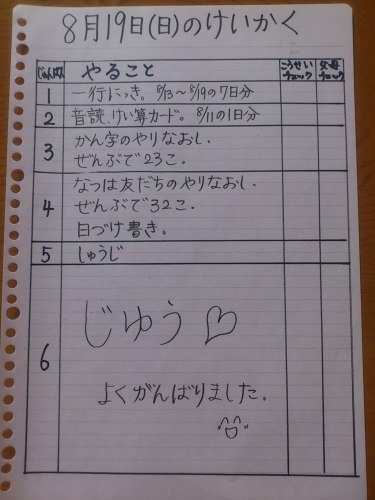 8月19日(日)のけいかく
じゅん番 やること こうせいチェック 父母チェック
1 一行にっき。8/13～8/19の7日分
2 音読、けい算カード。8/11の1日分
3 かん字のやりなおし。
ぜんぶで23こ。
4 なつは友だちのやりなおし。
ぜんぶで32こ。
日づけ書き。
5 しゅうじ
6 じゆう♡
よくがんばりました。